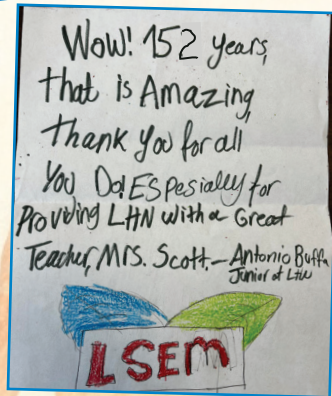 Wow! 152 years,
that is Amazing,
Thank You for all
You Do! ESpesially for
Providing LHN with a Great
Teacher, Mrs. Scott. - Antonio Buffa
Junior at LHN
LSEM